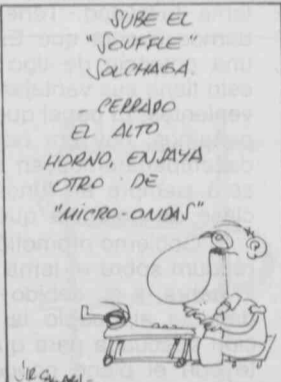 SUBE EL
"SOUFFLE"
SOLCHAGA
- CERRADO
EL ALTO
HORNO, ENSAYA
OTRO DE
"MICRO-ONDAS"